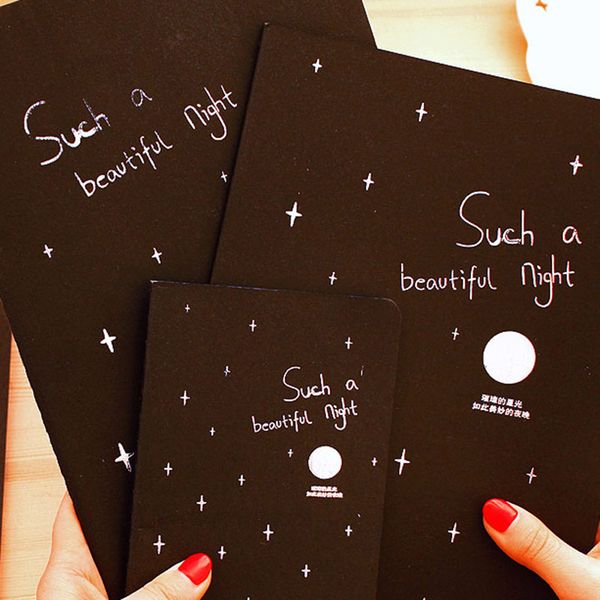 Such a
beautiful night
Such a
beautiful night
璀璨的星光
如此美妙的夜晚
Such a
beautiful night
璀璨的星光
如此美妙的夜晚